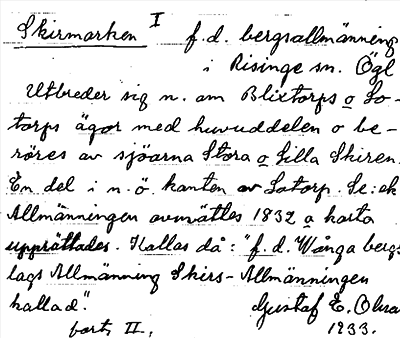 Skirmarken I f.d. bergsallmänning
i Risinge sn. Ögl
Utbreder sig n. om Blixtorps o So-
torps ägor med huvuddelen o be-
röres av sjöarna Stora o Lilla Skiren.
En del i n.ö. kanten av Sotorp. Se: ek
Allmänningen avmättes 1832 o karta
upprättades. Kallas då: "f.d. Wånga bergs
lags Allmänning Skirs-Allmänningen
kallad".
Gustaf E. Olsson
forts II.
1933.